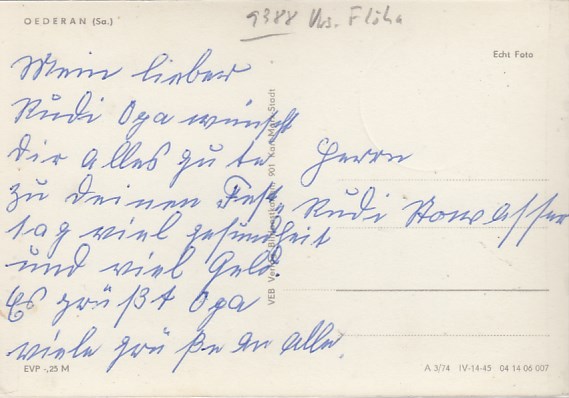 OEDERAN (Sa.)
9388 Krs. Flöha
Echt Foto
Mein lieber
Rudi Opa wünscht
dir alles gute
zu deinen Fest-
tag viel gesundheit
und viel Geld.
Es grüßt Opa
viele grüße an alle.
Herrn
Rudi Stowasser
VEB Verlag 901 Karl-Marx-Stadt
EVP -,25 M
A 3/74 IV-14-45 04 14 06 007